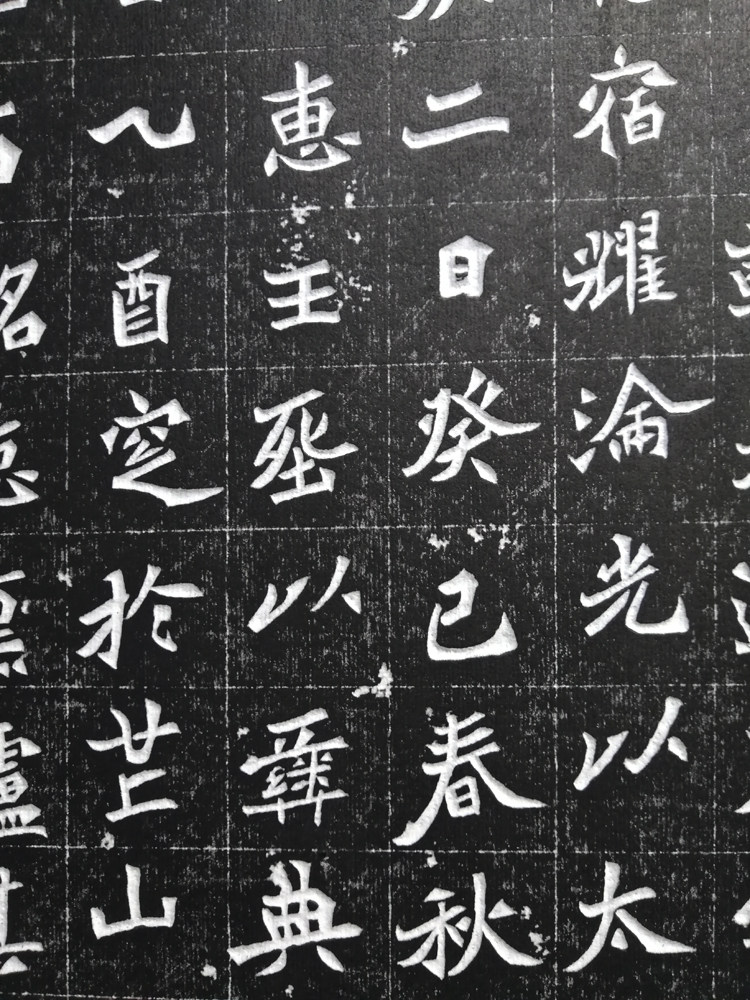 宿耀淪光以太
二日癸巳春秋
惠王葬以彝典
乙酉窆於芒山